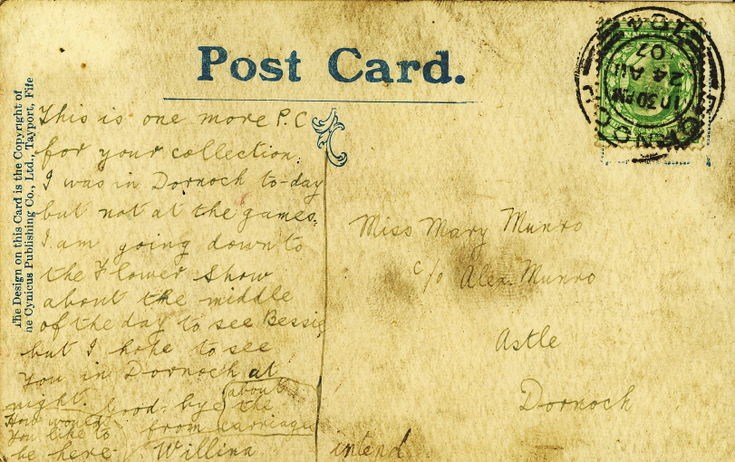 Post Card.
The Design on this Card is the Copyright of
the Cynicus Publishing Co., Ltd., Tayport, Fife
This is one more P.C
for your collection.
I was in Dornoch to-day
but not at the games.
I am going down to
the Flower Show
about the middle
of the day to see Bessie
but I hope to see
you in Dornoch at
night. Good-bye
How would
you like to
be here
about
the
from carriages
Willina
intend
Miss Mary Munro
c/o Alex. Munro
Astle
Dornoch
DORNOCH
10 30 AM
24 AU
07